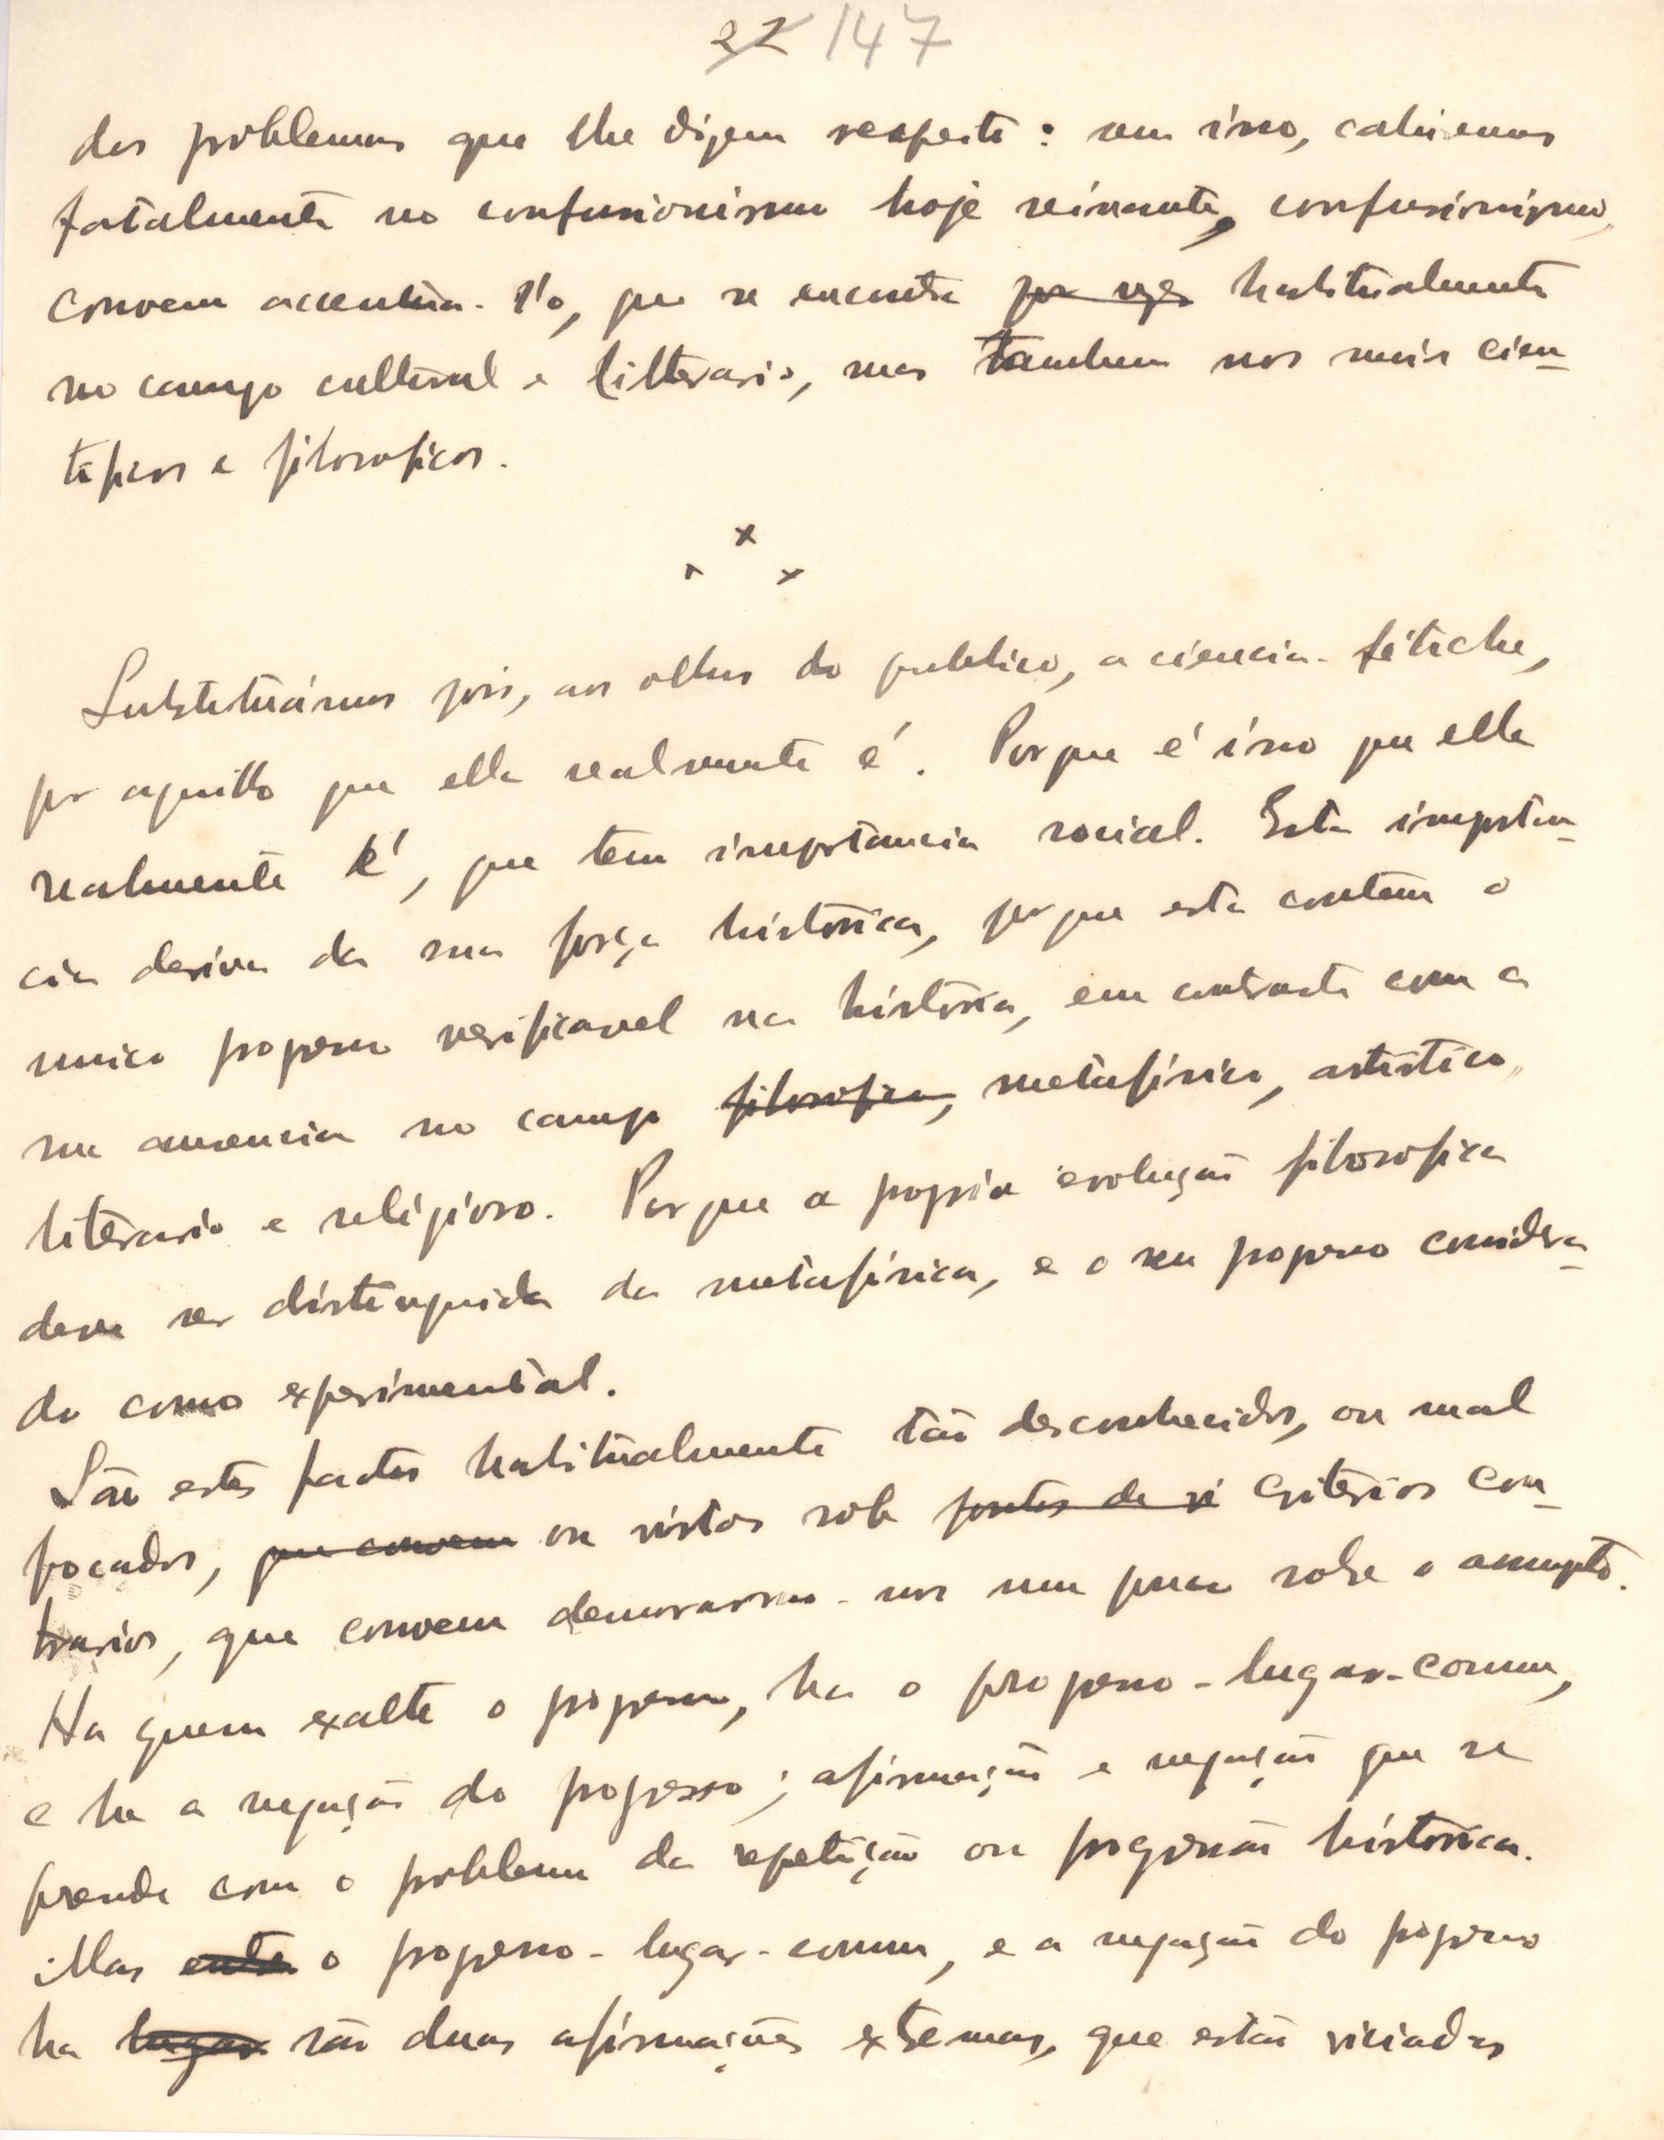 22 147
dos problemas que lhe dizem respeito: sem isso, cahiremos
fatalmente no confusionismo hoje reinante, confusionismo,
convem accentua-l'o, que se encontra por vezes habitualmente
no campo cultural e litterario, mas tambem nos meis cien-
tificos e filosoficos.
x
x x
Substituámos pois, aos olhos do publico, a ciencia-fétiche,
por aquillo que ella realmente é. Porque é isso que ella
realmente é, que tem importancia social. Esta importan-
cia deriva da sua força historica, porque esta contém o
unico progresso verificavel na historia, em contraste com a
sua ausencia no campo filosofico, metafisico, artistico,
literario e religioso. Porque a propria evolução filosofica
deve ser distinguida da metafisica, e o seu progresso considera-
do como experimental.
São estes factos habitualmente tão desconhecidos, ou mal
focados, que convem ou vistos sob pontos de vi criterios con-
trarios, que convem demorarmo-nos um pouco sobre o assumpto.
Ha quem exalte o progresso, ha o progresso-lugar-comum,
e ha a negação do progresso; afirmação e negação que se
prende com o problema da repetição ou progressão historica.
Mas entre o progresso-lugar-comum, e a negação do progresso
ha lugar são duas afirmações extremas, que estão viciadas